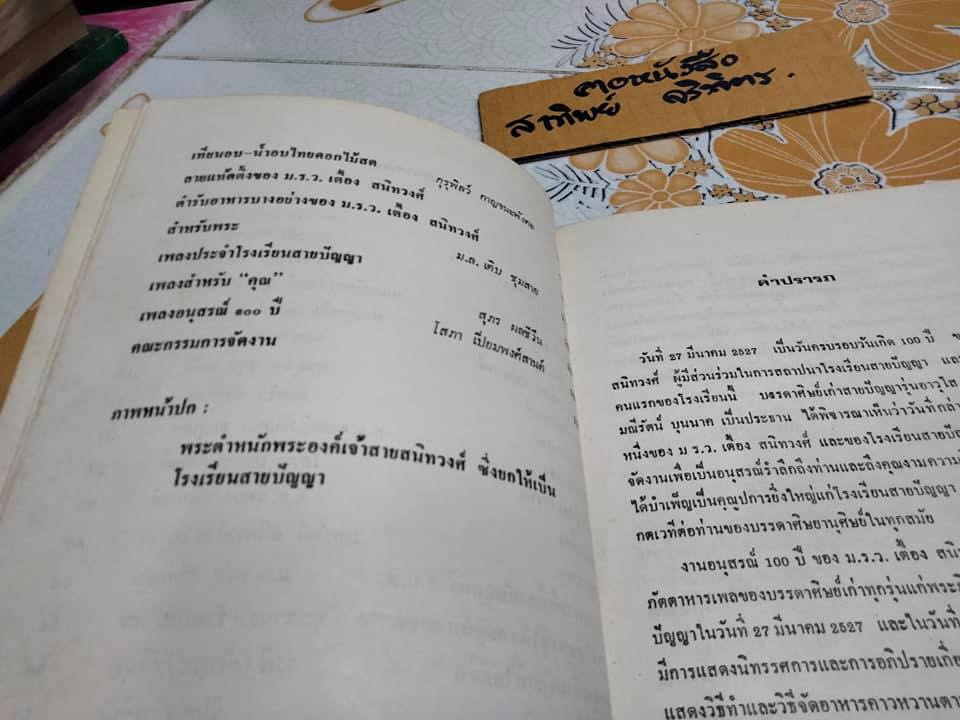 ฅอหนังสือ
สาทิพย์
เทียนอบ-น้ำอบไทยดอกไม้สด
ลายแท้ดั้งของ ม.ร.ว. เตื้อง สนิทวงศ์
ตำรับอาหารบางอย่างของ ม.ร.ว. เตื้อง สนิทวงศ์
สำหรับพระ
เพลงประจำโรงเรียนสายปัญญา ม.ล. เติบ ชุมสาย
เพลงสำหรับ “คุณ”
เพลงอนุสรณ์ ๑๐๐ ปี สุภร ผลชีวิน
คณะกรรมการจัดงาน โสภา เปี่ยมพงศ์สานต์
ภาพหน้าปก :
พระตำหนักพระองค์เจ้าสายสนิทวงศ์ ซึ่งยกให้เป็น
โรงเรียนสายปัญญา
คำปรารภ
วันที่ 27 มีนาคม 2527 เป็นวันครบรอบวันเกิด 100 ปี
สนิทวงศ์ ผู้มีส่วนร่วมในการสถาปนาโรงเรียนสายปัญญา
คนแรกของโรงเรียนนี้ บรรดาศิษย์เก่าสายปัญญารุ่นอาวุโส
มณีรัตน์ บุนนาค เป็นประธาน ได้พิจารณาเห็นว่าวันที่กล่า
หนึ่งของ ม ร.ว. เตื้อง สนิทวงศ์ และของโรงเรียนสายปัญ
จัดงานเพื่อเป็นอนุสรณ์รำลึกถึงท่านและถึงคุณงามความ
ได้บำเพ็ญเป็นคุณูปการยิ่งใหญ่แก่โรงเรียนสายปัญญา
กตเวทีต่อท่านของบรรดาศิษยานุศิษย์ในทุกสมัย
งานอนุสรณ์ 100 ปี ของ ม.ร.ว. เตื้อง สนิ
ภัตตาหารเพลของบรรดาศิษย์เก่าทุกรุ่นแก่พระ
ปัญญาในวันที่ 27 มีนาคม 2527 และในวันที่
มีการแสดงนิทรรศการและการอภิปรายเกี่ย
แสดงวิธีทำและวิธีจัดอาหารคาวหวานตา